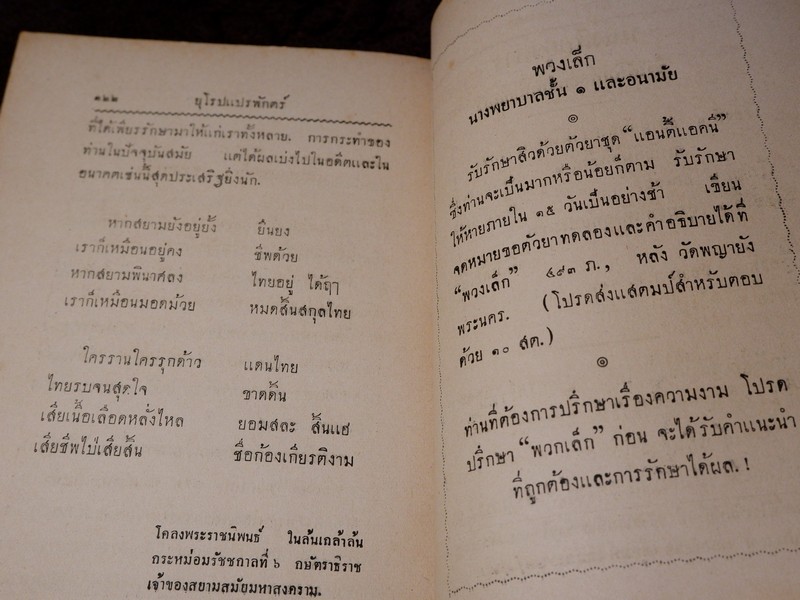 ๑๒๒ ยุโรปแปรพักตร์
ที่ได้เพียรรักษามาให้แก่เราทั้งหลาย. การกระทำของ
ท่านในปัจจุบันสมัย แต่ได้ผลเบ่งไปในอดีตและใน
อนาคตเช่นนี้สุดประเสริฐยิ่งนัก.
หากสยามยังอยู่ยั้ง ยืนยง
เราก็เหมือนอยู่คง ชีพด้วย
หากสยามพินาศลง ไทยอยู่ ได้ฤๅ
เราก็เหมือนมอดม้วย หมดสิ้นสกุลไทย
ใครรานใครรุกด้าว แดนไทย
ไทยรบจนสุดใจ ขาดดิ้น
เสียเนื้อเลือดหลั่งไหล ยอมสละ สิ้นแฮ
เสียชีพไป่เสียสิ้น ชื่อก้องเกียรติงาม
โคลงพระราชนิพนธ์ ในล้นเกล้าล้น
กระหม่อมรัชชกาลที่ ๖ กษัตราธิราช
เจ้าของสยามสมัยมหาสงคราม.
พวงเล็ก
นางพยาบาลชั้น ๑ และอนามัย
๏
รับรักษาสิวด้วยตัวยาชุด “แอนตี้แอคนี่”
ซึ่งท่านจะเป็นมากหรือน้อยก็ตาม รับรักษา
ให้หายภายใน ๑๕ วันเป็นอย่างช้า เขียน
จดหมายขอตัวยาทดลองและคำอธิบายได้ที่
“พวงเล็ก” ๔๙๓ ภ., หลัง วัดพญายัง
พระนคร. (โปรดส่งแสตมป์สำหรับตอบ
ด้วย ๑๐ สต.)
๏
ท่านที่ต้องการปรึกษาเรื่องความงาม โปรด
ปรึกษา “พวกเล็ก” ก่อน จะได้รับคำแนะนำ
ที่ถูกต้องและการรักษาได้ผล. !